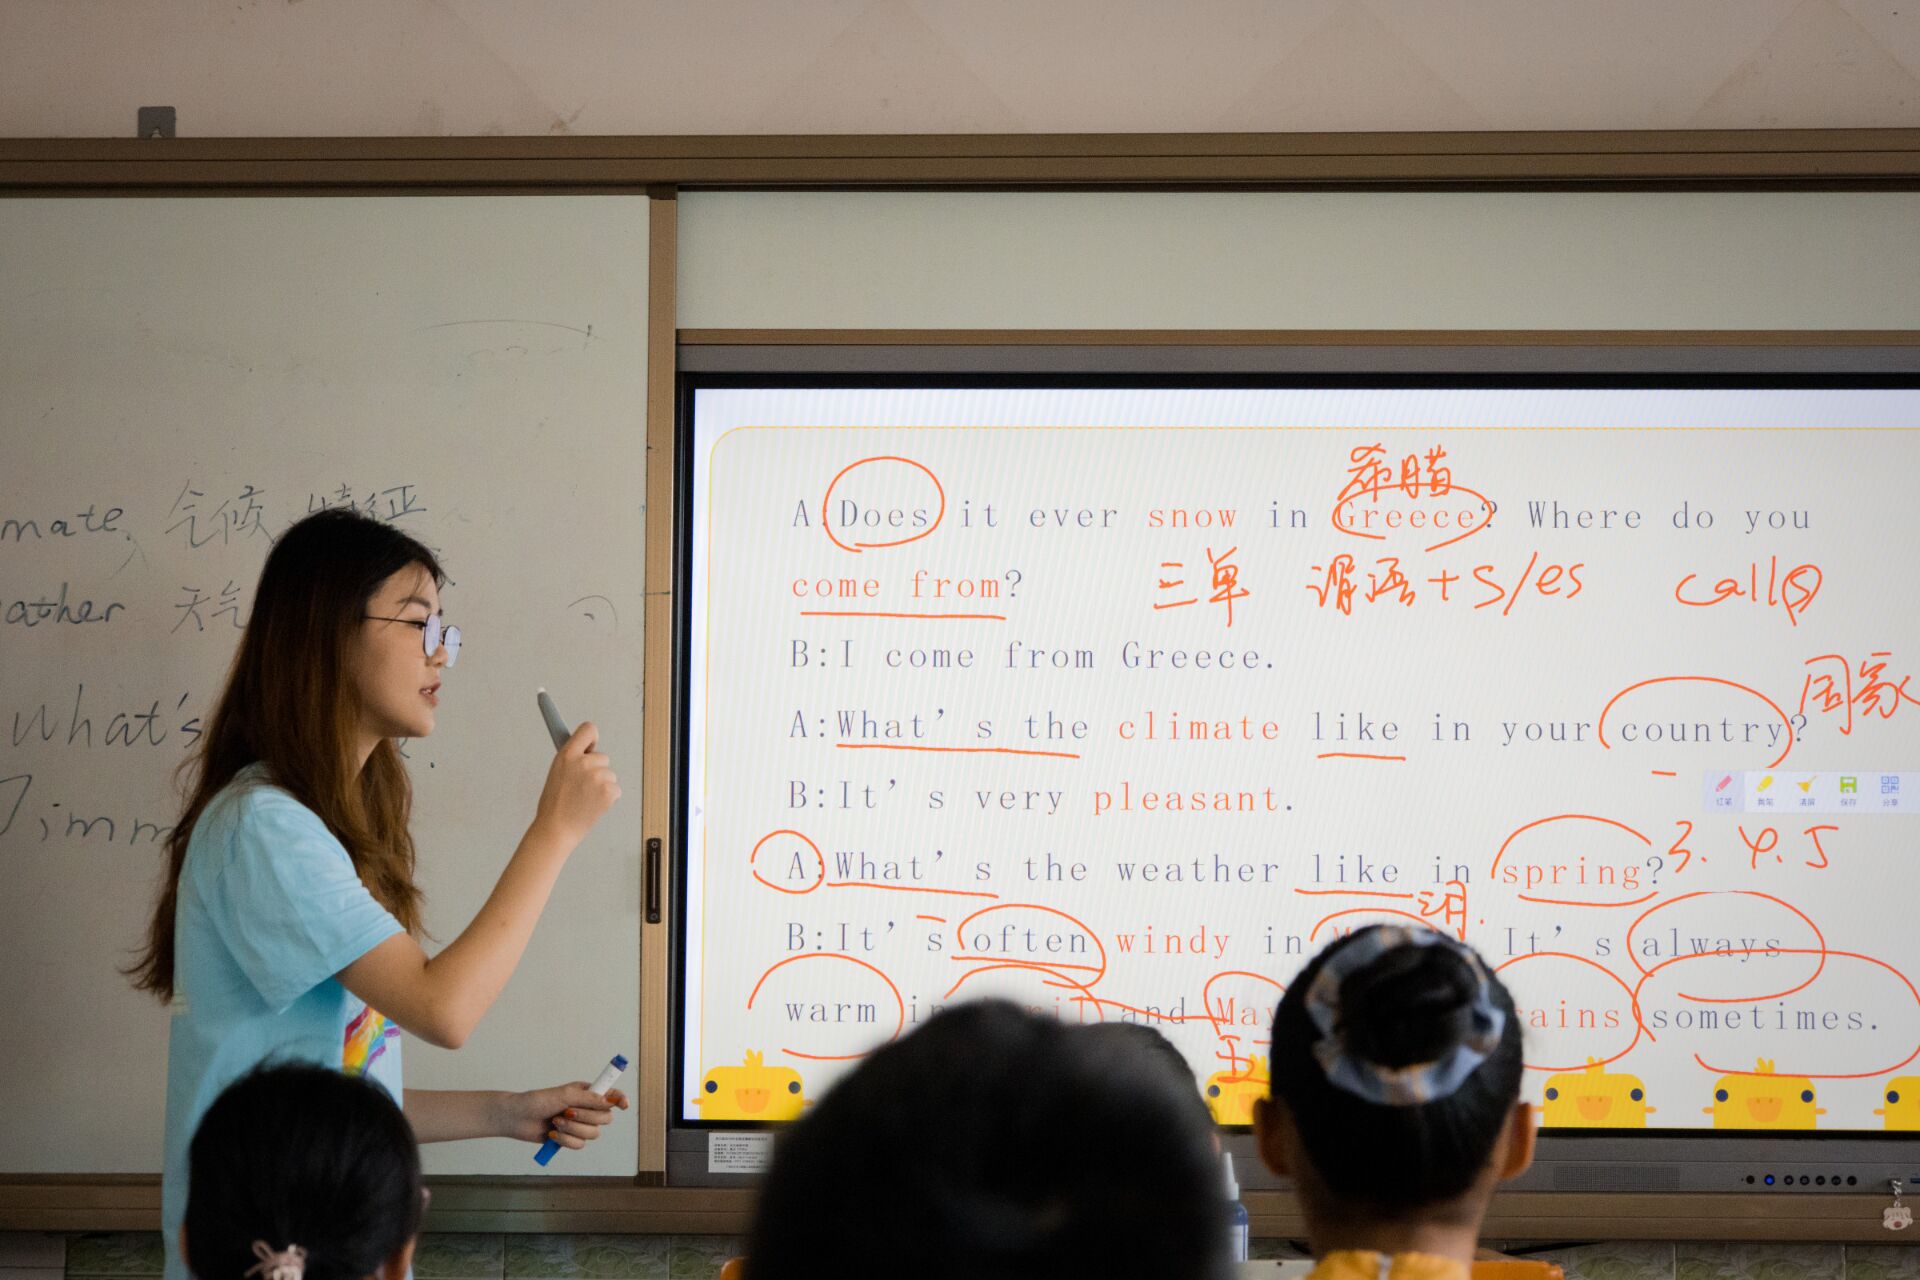 mate. 气候 特征
eather 天气
What's
Jimm
希腊
A:Does it ever snow in Greece? Where do you
come from?
三单 谓语+s/es call(s)
B:I come from Greece.
国家
A:What's the climate like in your country?
B:It's very pleasant.
红笔 黄笔 清屏 保存 分享
A:What's the weather like in spring? 3. 4. 5
三月.
B:It's often windy in It's always
warm in and May rains sometimes.
五